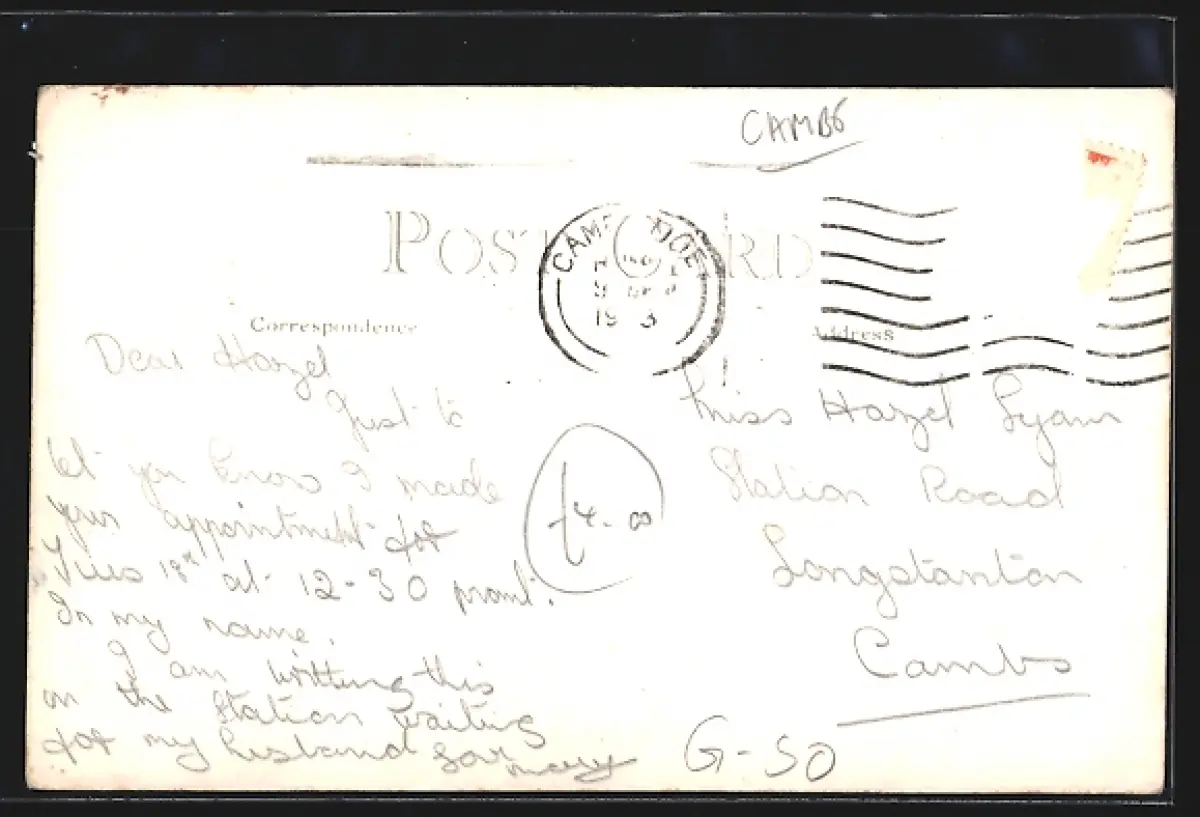 CAMBS
POST CARD
CAMBRIDGE
19 3
Correspondence
Address
Dear Hazel
Just to
let you know I made
your appointment for
Tues 18th at 12-30 promt.
In my name.
I am writting this
on the Station waiting
for my husband
Miss Hazel
Station Road
Longstanton
Cambs
£4-00
G-50